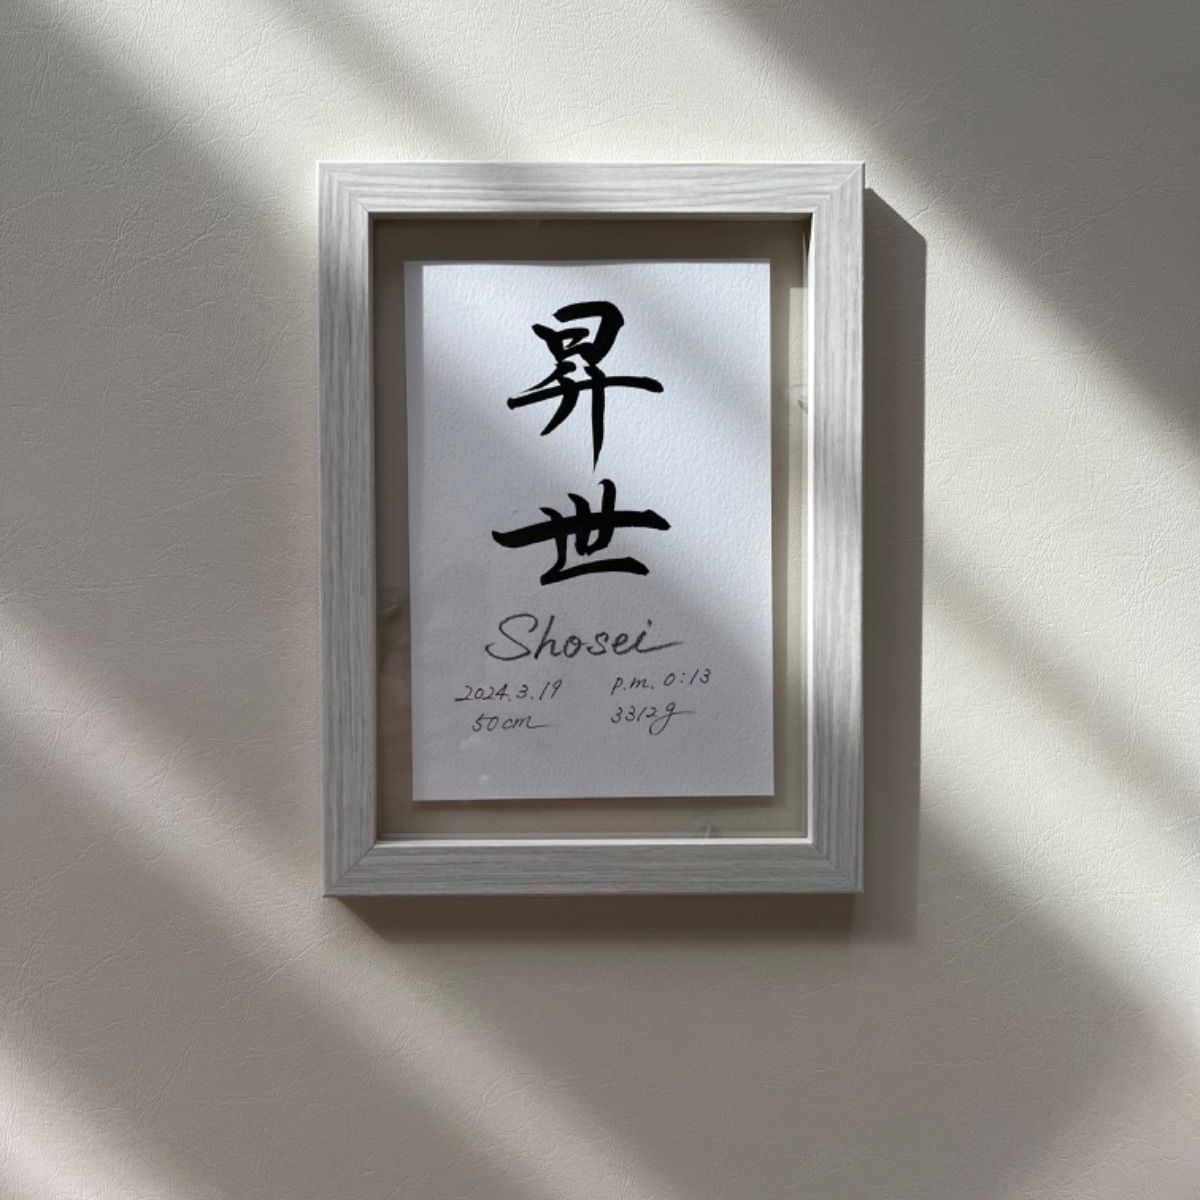 昇
世
Shosei
2024.3.19 p.m. 0:13
50cm 3312g